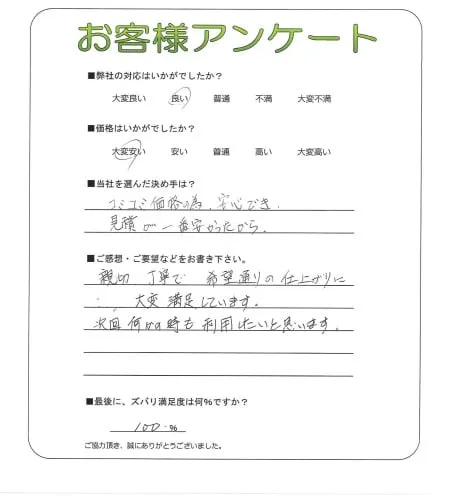 お客様アンケート
■弊社の対応はいかがでしたか？
大変良い 良い 普通 不満 大変不満
■価格はいかがでしたか？
大変安い 安い 普通 高い 大変高い
■当社を選んだ決め手は？
コミコミ価格の為、安心でき、
見積が一番安かったから。
■ご感想・ご要望などをお書き下さい。
親切 丁寧で 希望通りの仕上がりに
大変満足しています。
次回何かの時も利用したいと思います。
■最後に、ズバリ満足度は何%ですか？
100 %
ご協力頂き、誠にありがとうございました。